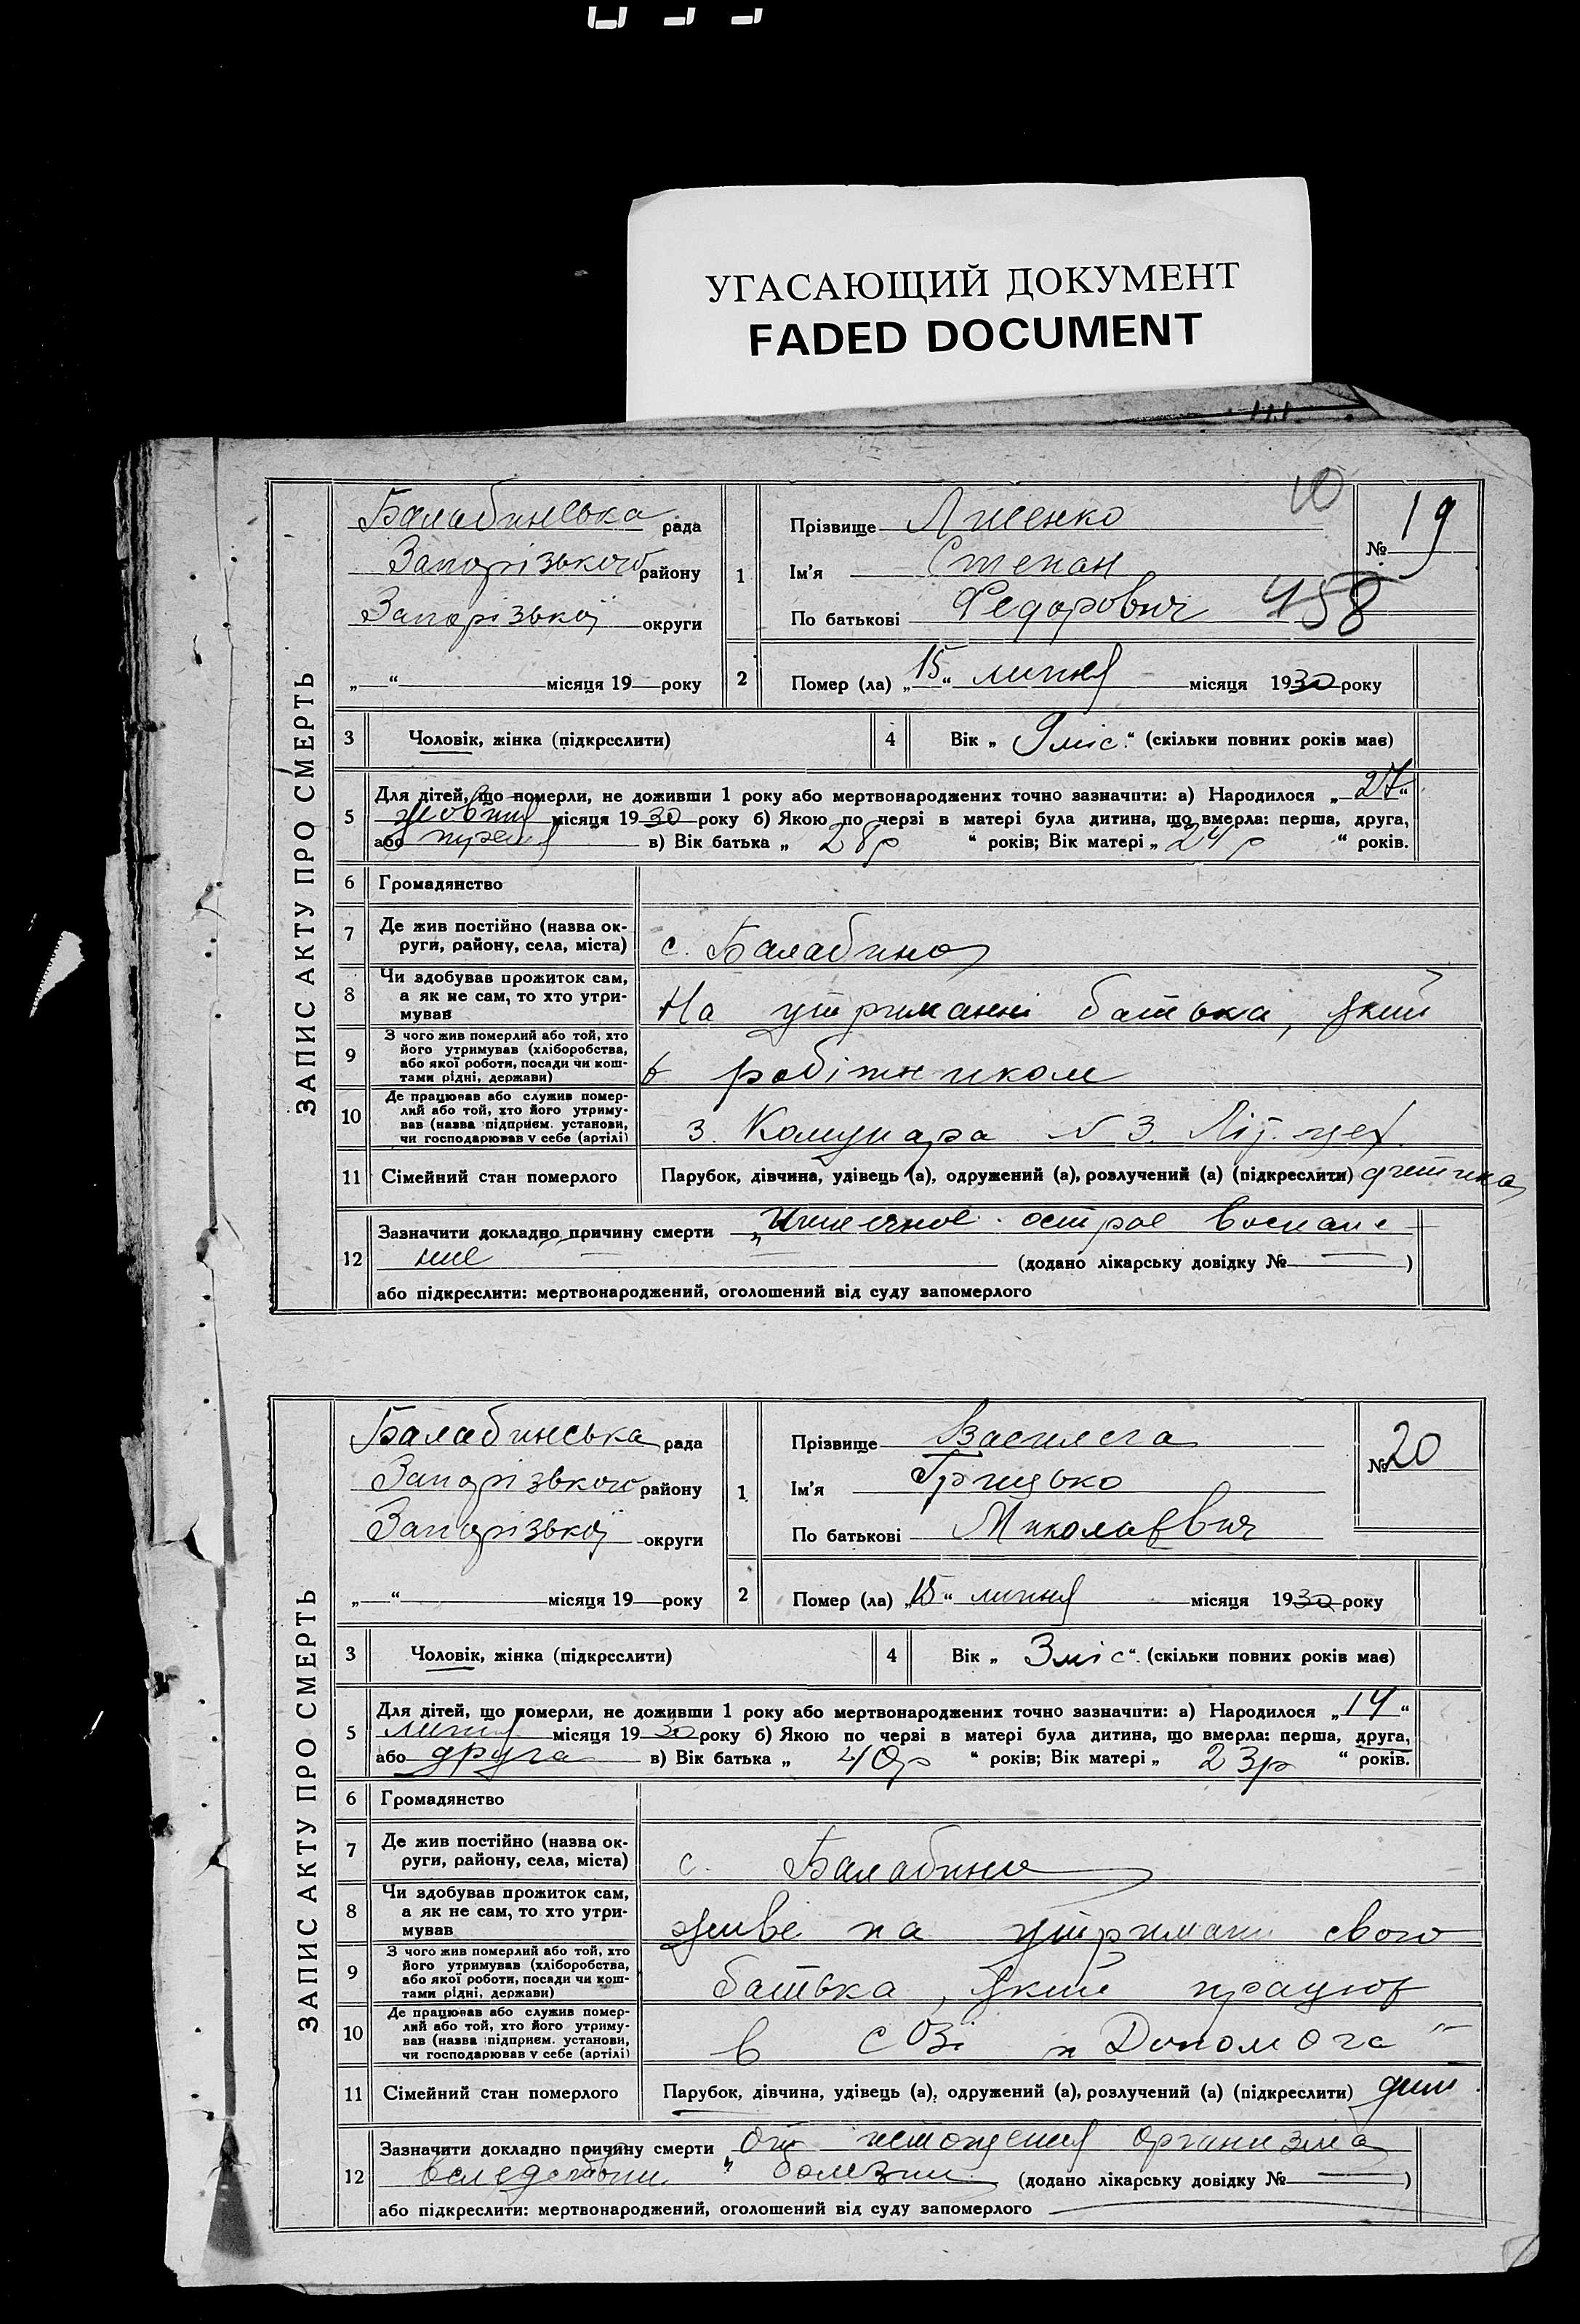 УГАСАЮЩИЙ ДОКУМЕНТ
FADED DOCUMENT
10
ЗАПИС АКТУ ПРО СМЕРТЬ
Балабинська рада
Запорізького району
Запорізької округи
„ “ місяця 19 року
1
Прізвище Лисенко
Ім’я Степан
По батькові Федорович
458
№ 19
2 Помер (ла) „15“ липня місяця 1930 року
3 Чоловік, жінка (підкреслити)
4 Вік „ 9 міс.“ (скільки повних років має)
5 Для дітей, що померли, не доживши 1 року або мертвонароджених точно зазначити: а) Народилося „27“
жовтня місяця 1930 року б) Якою по черзі в матері була дитина, що вмерла: перша, друга,
або в) Вік батька „ 28р “ років; Вік матері „ 24 р “ років.
6 Громадянство
7 Де жив постійно (назва ок-
руги, району, села, міста) с. Балабино
8 Чи здобував прожиток сам,
а як не сам, то хто утри-
мував На утриманні батька, який
9 З чого жив померлий або той, хто
його утримував (хліборобства,
або якої роботи, посади чи кош-
тами рідні, держави) є робітником
10 Де працював або служив помер-
лий або той, хто його утриму-
вав (назва підприєм. установи,
чи господарював у себе (артілі) З. Комунара N 3.Літ. цех.
11 Сімейний стан померлого Парубок, дівчина, удівець (а), одружений (а), розлучений (а) (підкреслити) дитина
12 Зазначити докладно причину смерти „ острое воспале
ние (додано лікарську довідку № )
або підкреслити: мертвонароджений, оголошений від суду запомерлого
ЗАПИС АКТУ ПРО СМЕРТЬ
Балабинська рада
Запорізького району
Запорізької округи
„ “ місяця 19 року
1
Прізвище
Ім’я Грицько
По батькові Миколаєвич
№ 20
2 Помер (ла) „15“ липня місяця 1930 року
3 Чоловік, жінка (підкреслити)
4 Вік „ 3 міс“. (скільки повних років має)
5 Для дітей, що померли, не доживши 1 року або мертвонароджених точно зазначити: а) Народилося „14“
липня місяця 1930 року б) Якою по черзі в матері була дитина, що вмерла: перша, друга,
або друга в) Вік батька „ 40р “ років; Вік матері „ 23р “ років.
6 Громадянство
7 Де жив постійно (назва ок-
руги, району, села, міста) с. Балабино
8 Чи здобував прожиток сам,
а як не сам, то хто утри-
мував живе на утримані свого
9 З чого жив померлий або той, хто
його утримував (хліборобства,
або якої роботи, посади чи кош-
тами рідні, держави) батька, який працює
10 Де працював або служив помер-
лий або той, хто його утриму-
вав (назва підприєм. установи,
чи господарював у себе (артілі) в СОЗі „Допомога“
11 Сімейний стан померлого Парубок, дівчина, удівець (а), одружений (а), розлучений (а) (підкреслити) дит.
12 Зазначити докладно причину смерти „От истощения организма
вследствии болезни (додано лікарську довідку № )
або підкреслити: мертвонароджений, оголошений від суду запомерлого